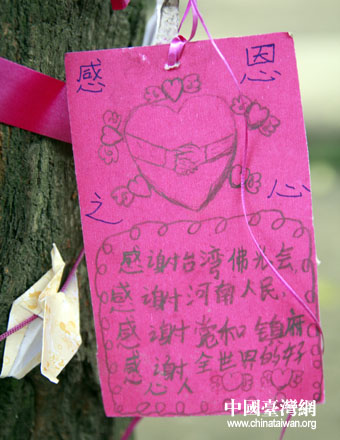 感 恩
之 心
感谢台湾佛光会
感谢河南人民、
感谢党和镇府
感谢全世界的好
心人
中國臺灣網
www.chinataiwan.org